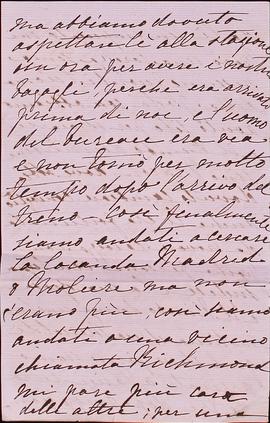 ma abbiamo dovuto
aspettare lè alla stazione
un ora per avere i nostri
bagagli perchè era arrivati
prima di noi, e l'uomo
del bureau era via
e non tornò per molto
tempo dopo l'arrivo del
treno — così finalmente
siamo andati a cercare
la locanda Madrid
& Moliere ma non
c'erano più, così siamo
andati a una vicino
chiamata Richmond
mi pare più cara
delle altre; per una